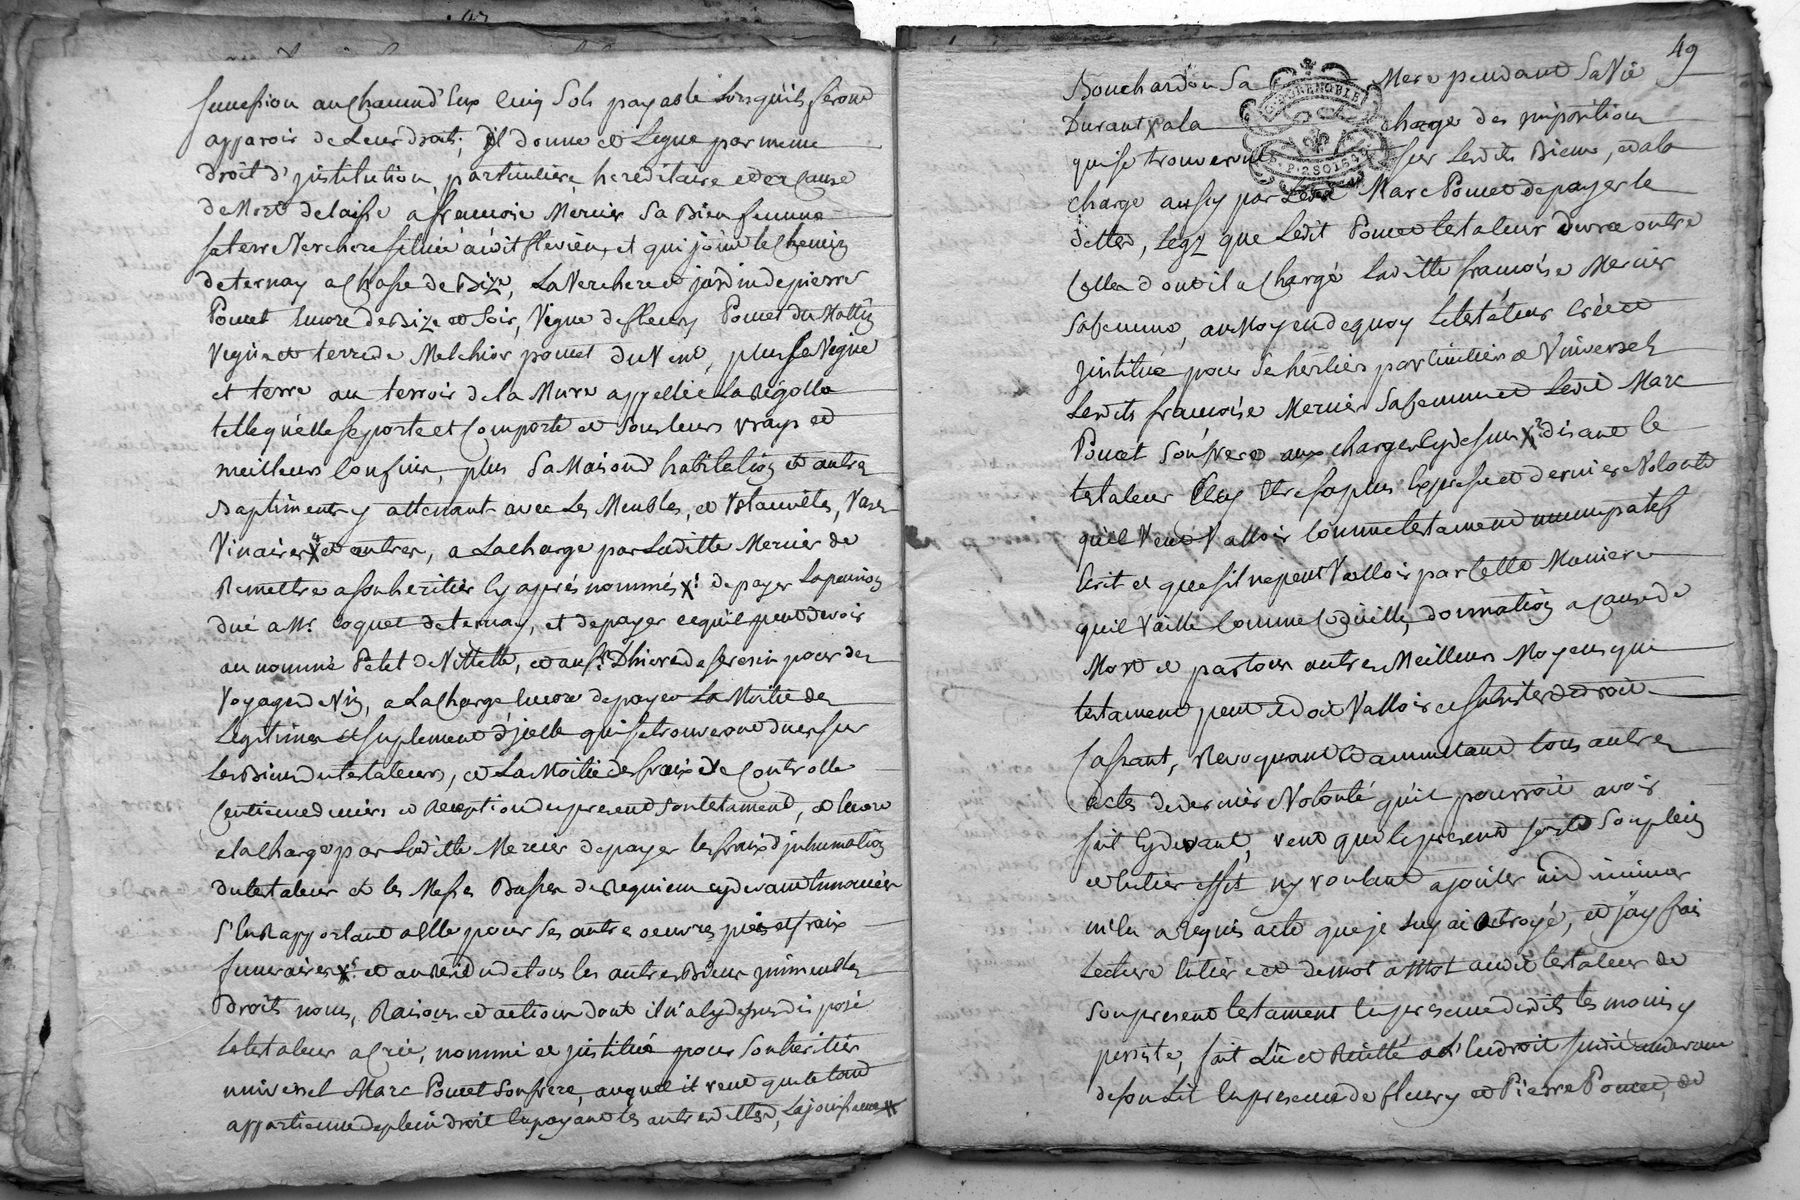 succession a un chacun d'eux cinq sols payable lorsqu'ils seront
apparoir de leur droit, Il donne et Legue par meme
droit d'jnstitution particuliere hereditaire et a cause
de Mort delaisse a francoise Mercier sa Bien femme
sa terre Verchere située audit flevieu, et qui joint le chemin
de ternay a chasse de Bize, La Verchere et jardin de pierre
Poncet Encore de Bize et soir, Vigne de fleury Poncet du Mattin
Vigne et terre de Melchior poncet du Vent, plus sa Vigne
et terre au terroir de la Mure appellée La Rigolla
telle qu'elle se porte et Comporte et sous leurs vrays et
meilleurs confins, plus sa Maison d'habitation et autres
Baptiments y attenant avec Les Meubles, et Ustancilles, Vases
Vinaires X et autres, a La charge par Laditte Mercier de
Remettre a son heritier Cy aprés nommés X de payer La pension
dué a Mr. Coquet de ternay, et de payer ce qu'il peut devoir
au nommé Petit de Villette, et au Sr. de serezin pour des
Voyages de Vin, a La charge Encore de payer La Moitié des
Legitimes et suplement d'jcelle qui se trouveront dues sur
Les Biens du testateurs, et La Moitié des fraix de Controlle
Centieme denier et Reception du present son testament, et Encore
a la charge par Laditte Mercier de payer les fraix d'jnhumation
du testateur et les Messes Basses de Requiem cy devant Enoncées
s'En Rapportant a Elle pour ses autres oeuvres pies et fraix
funeraires X et au Residu de tous les autres Biens jmmeubles
droits noms, Raisons et actions dont il n'a Cy dessus disposé
Le testateur a Crée, nommé et jnstitué pour son heritier
universel Marc Poncet son frere, auquel il veut que le tout
appartienne de plein droit En payant les autres dettes, La jouissance
49
Bouchardon Sa Mere pendant Sa Vie
Durant X a la charge des jmpositions
qui se trouveront sur Lesdits Biens, et a la
charge aussy par Ledit Marc Poncet de payer le
dettes, Legs que Ledit Poncet testateur devra outre
Celles dont il a Chargé Laditte francoise Mercier
Sa femme, au Moyen de quoy Le testateur crée et
jnstitué pour Ses heritiers particuliers et Universels
Lesdits francoise Mercier Sa femme et Ledit Marc
Poncet Son frere aux charges Cy dessus X disant le
testateur Cecy Etre sa plus Expresse et derniere Volonté
qu'il Veut Valloir Comme testament nuncupatif
Ecrit et que s'il ne peut Valloir par Cette Maniere
qu'il Vaille Comme Codicille, donnation a cause de
Mort et par tous autres Meilleurs Moyens que
testament peut Et doit Valloir et subsister de droit
Cassant, Revoquant et annullant tous autres
actes de derniere Volonté qu'il pourroit avoir
fait Cy devant, veut que le present sorte Son plein
et Entier effet n'y voulant ajouter ni diminuer
m'En a Requis acte que je Luy ai octroyé, et j'ay fais
Lecture Entiere et de mot a Mot audit testateur de
Son present testament En presence desdits temoins y
persiste, fait Lû et Recitté a L'Endroit susdit audevant
de son Lit En presence de fleury et Pierre Poncet, de